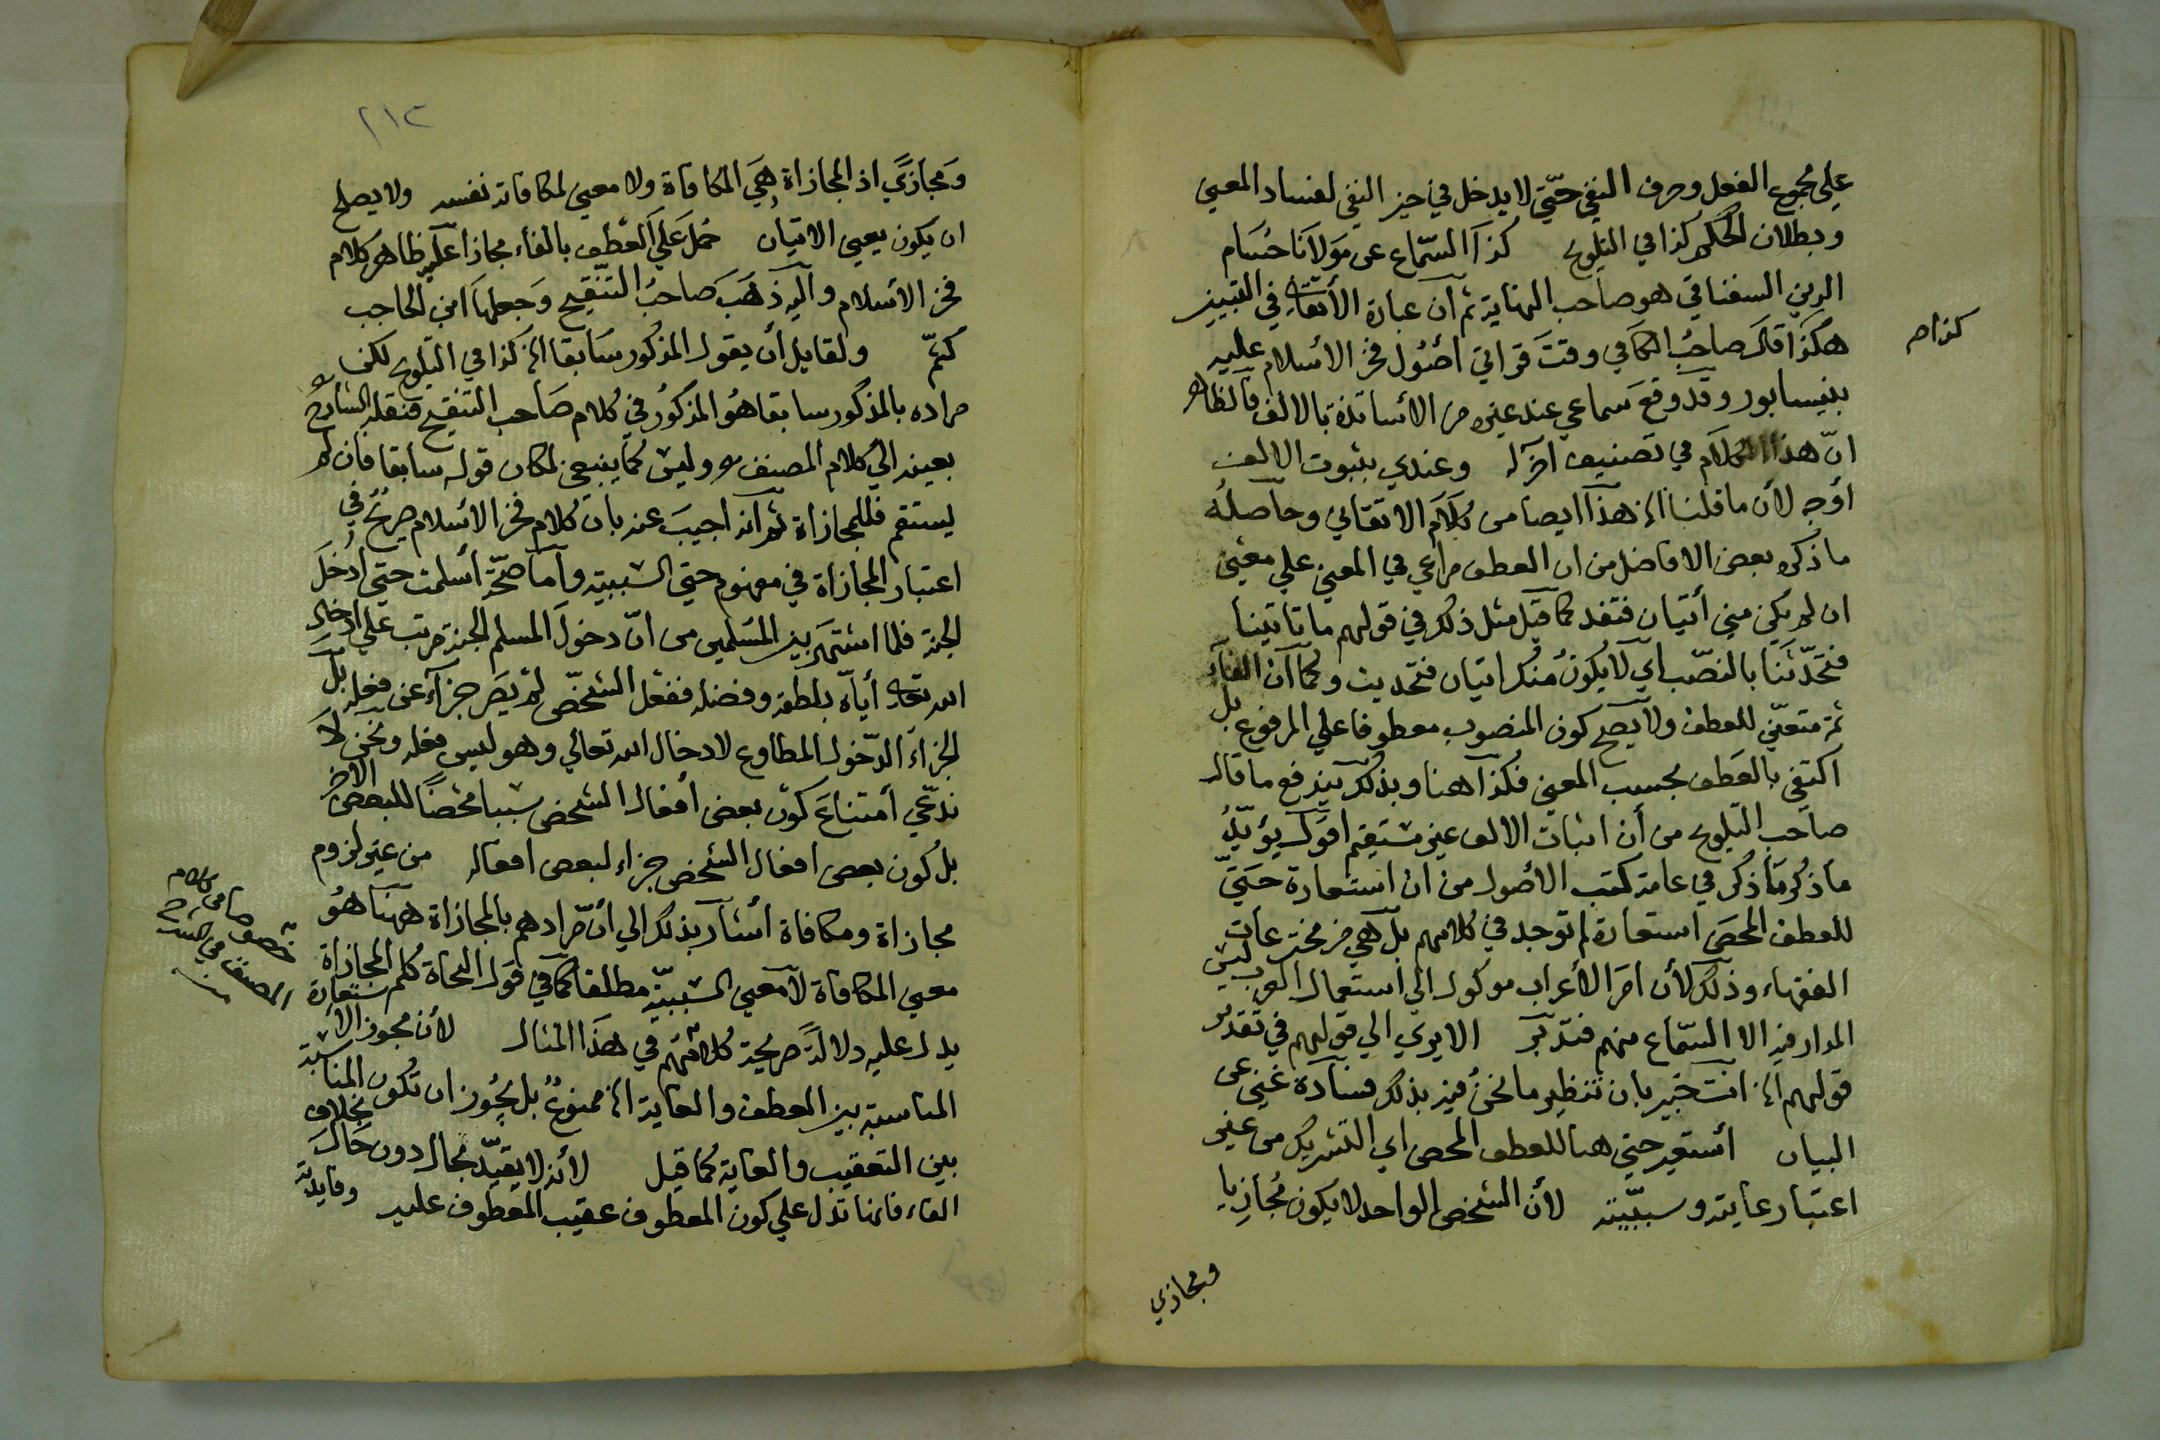 علي مجموع الفعل وحرف النفي حتّي لا يدخل في حيز النفي لفساد المعني
وبطلان الحكم كذا في التلويح كذا السّماع عن مولانا حسام
الدين السغناقي هو صاحب النهاية ثم ان عبارة الأتقاني في التبيين
هكذا قال صاحب الكافي وقت قراتي اصول فخر الأسلام عليه
كذا صح
بنيسابور وقد وقع سماعي عند غيره من الأساتذة بالالف فالظاهر
انّ هذا الكلام في تصنيف آخر له وعندي بثبوت الالف
أوجه لأن ما قلنا الخ هذا ايضا من كلام الاتقاني وحاصله
ما ذكره بعض الافاضل من ان العطف مراعي في المعني علي معني
ان لم يكن مني أتيان فتغد كما قيل مثل ذلك في قولهم ما تاتينا
فتحدّثنا بالنصّب اي لا يكون منك اتيان فتحديث وكما ان الفاء
ثمة متعيّن للعطف ولا يصح كون المنصوب معطوفا علي المرفوع بل
اكتفي بالعطف بحسب المعني فكذا هنا وبذلك يندفع ما قاله
صاحب التلويح من أن اثبات الالف غير مستقيم اقول يؤيّد
ما ذكر ما ذكر في عامة كتب الاصول من ان استعارة حتّي
للعطف المحض استعارة لم توجد في كلامهم بل هي من مخترعات
الفقهاء وذلك لأن امر الأعراب موكول الي استعمال العرب ليس
المدار فيه الا السّماع منهم فتدبّر الا يري الي قولهم في تقدير
قولهم الخ انت خبير بان تنظير ما نحن فيه بذلك فساده غني عن
البيان أستعير حتي هنا للعطف المحض اي التشريك من غير
اعتبار غاية وسببيّة لأن الشخص الواحد لا يكون مجازيا
ومجازي
٢١٢
ومجازي اذ المجازاة هي المكافاة ولا معني لمكافاة نفسه ولا يصلح
ان يكون يعني الاتيان حمل علي العطف بالفاء مجازا عليه ظاهر كلام
فخر الأسلام واليه ذهب صاحب التنقيح وجعلها ابن الحاجب
كثمّ ولقايل أن يقول المذكور سابقا الخ كذا في التلويح لكن
مراده بالمذكور سابقا هو المذكور في كلام صاحب التنقيح فنقله الشارح
بعينه الي كلام المصنف وليس كما ينبغي لمكان قوله سابقا فان لم
يستقم فللمجازاة ثم انه اجيب عنه بان كلام فخر الأسلام صريح في
اعتبار المجازاة في مفهوم حتي السببية وأما صحّة أسلمت حتي أدخل
الجنة فلما اشتهر بين المسلمين من انّ دخول المسلم الجنة مرتب علي ادخال
الله تعالى أياه بلطفه وفضله ففعل الشخص لم يصر جزآء عن فعله بل
الجزاء الدّخول المطاوع لادخال الله تعالي وهو ليس فعله ونحن لا
ندّعي أمتناع كون بعض أفعال الشخص سببا محضا للبعض الاخر
بل كون بعض افعال الشخص جزاء لبعض افعاله من غير لزوم
مجازاة ومكافاة أشار بذلك الي انّ مرادهم بالمجازاة ههنا هو
معني المكافاة لا معني السببيّة مطلقا كما في قول النحاة كلم المجازاة
يدل عليه دلالة صريحة كلامهم في هذا المثال لأن مجوز الاستعارة
المناسبة بين العطف والغاية الخ ممنوع بل يجوز ان تكون المناسبة
بين التعقيب والغاية كما قيل لأنه لا يقيّد بحال دون حال بخلاف
الفاء فانها تدل علي كون المعطوف عقيب المعطوف عليه وفايدته